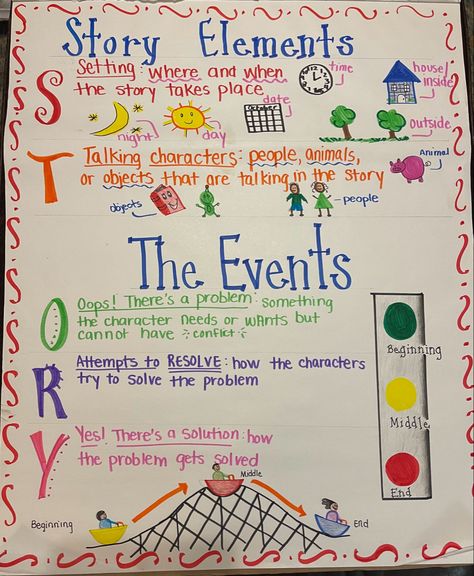 Story Elements
S
Setting: where and when
the story takes place
time
house/
inside
date
October
night
day
outside
T
Talking characters: people, animals,
or objects that are talking in the story
Animal
objects
people
The Events
O
Oops! There's a problem: something
the character needs or wants but
cannot have conflict
R
Attempts to RESOLVE: how the characters
try to solve the problem
Y
Yes! There's a solution: how
the problem gets solved
Beginning
Middle
End
Beginning
Middle
End